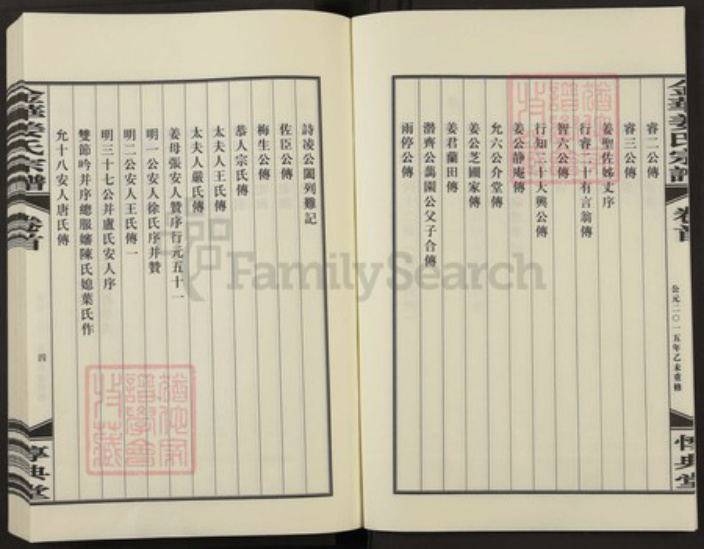 金華姜氏宗譜
卷首
公元二〇一五年乙未重修
惇典堂
睿二公傳
睿三公傳
姜聖佐姊丈序
行睿二十有言翁傳
智六公傳
行知三十大興公傳
姜公静庵傳
允六公介堂傳
姜公芝圃家傳
姜君蘭田傳
潛齊公藹園公父子合傳
雨亭公傳
詩凌公闔列難記
佐臣公傳
梅生公傳
恭人宗氏傳
太夫人王氏傳
太夫人嚴氏傳
姜母張安人贊序行元五十一
明一公安人徐氏序并贊
明二公安人王氏傳一
明三十七公并盧氏安人序
雙節吟并序總服嬸陳氏媳葉氏作
允十八安人唐氏傳
金華姜氏宗譜
卷首
四
惇典堂
FamilySearch